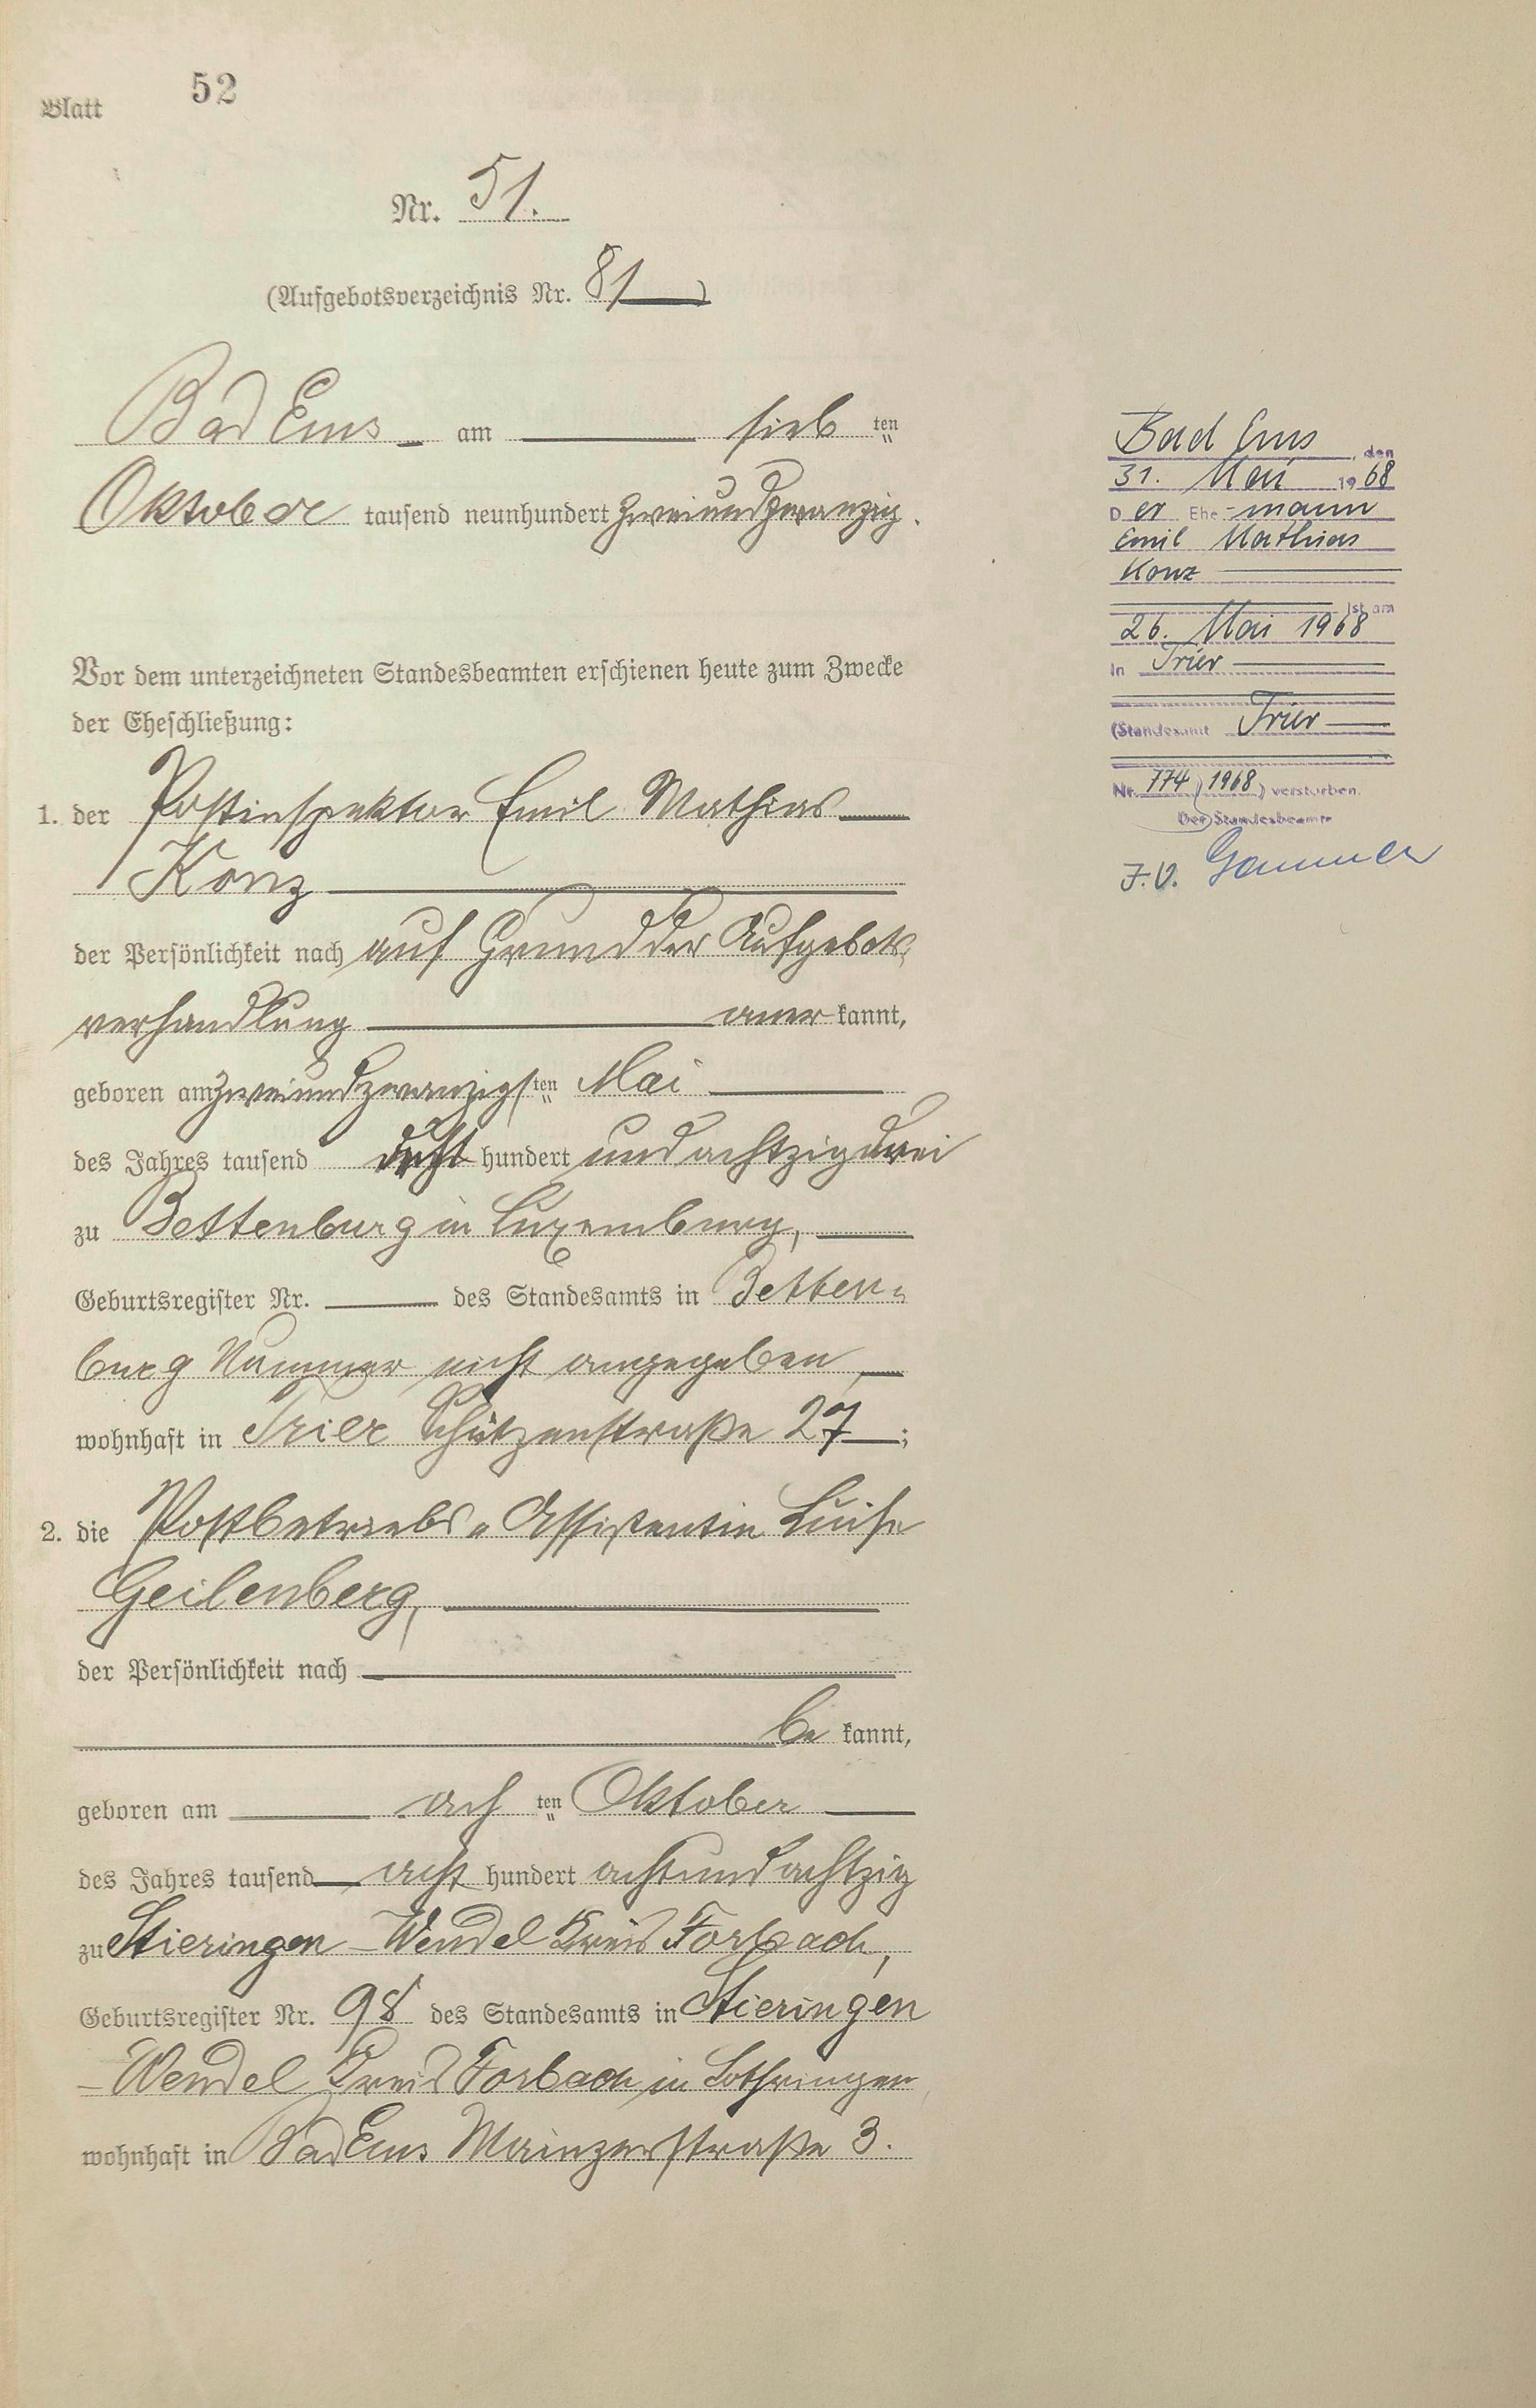 Blatt 52
Nr. 51.
(Aufgebotsverzeichnis Nr. 81)
Bad Ems am sieb ten
Oktober tausend neunhundert zweiundzwanzig.
Vor dem unterzeichneten Standesbeamten erschienen heute zum Zwecke
der Eheschließung:
1. der Postinspektor Emil Mathias
Konz
der Persönlichkeit nach auf Grund der Aufgebots-
verhandlung anerkannt,
geboren am zweiundzwanzigsten Mai
des Jahres tausend acht hundert und achtzig drei
zu Bettenburg in Luxemburg,
Geburtsregister Nr. des Standesamts in Betten-
burg Nummer nicht angegeben,
wohnhaft in Trier Schützenstraße 27;
2. die Postbetriebs-Assistentin Luise
Geilenberg,
der Persönlichkeit nach
be kannt,
geboren am ach ten Oktober
des Jahres tausend acht hundert achtundachtzig
zu Stieringen-Wendel Kreis Forbach,
Geburtsregister Nr. 98 des Standesamts in Stieringen
-Wendel Kreis Forbach in Lothringen,
wohnhaft in Bad Ems Mainzerstraße 3.
Bad Ems, den
31. Mai 1968
Der Ehe-mann
Emil Mathias
Konz
ist am
26. Mai 1968
in Trier
(Standesamt Trier
Nr. 774/1968) verstorben.
Der Standesbeamte
J.V. Gammer